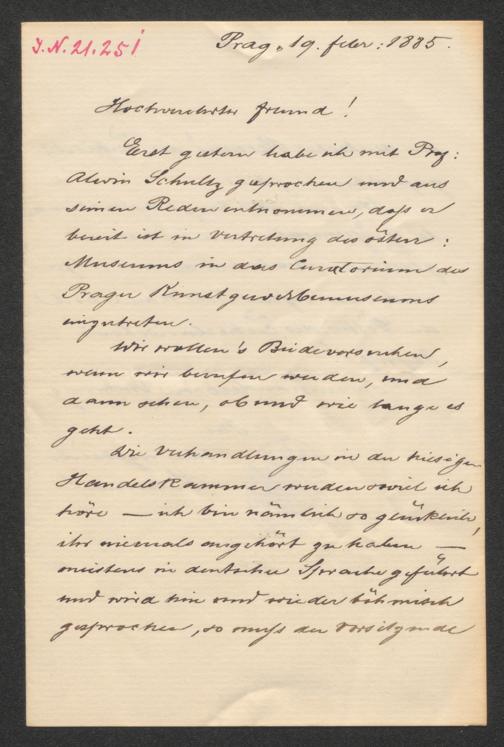 I.N. 21.251
Prag, 19. febr: 1885.
Hochverehrter freund!
Erst gestern habe ich mit Prof:
Alwin Schultz gesprochen und aus
seinen Reden entnommen, daß er
bereit ist in Vertretung des österr:
Museums in das Curatorium des
Prager Kunstgewerbemuseums
einzutreten.
Wir wollen's Beide versuchen,
wenn wir berufen werden, und
dann sehen, ob und wie lange es
geht.
Die Verhandlungen in der hiesigen
Handelskammer werden soviel ich
höre — ich bin nämlich so glücklich,
ihr niemals angehört zu haben —
meistens in deutscher Sprache geführt
und wird hin und wieder böhmisch
gesprochen, so muß der Vorsitzende